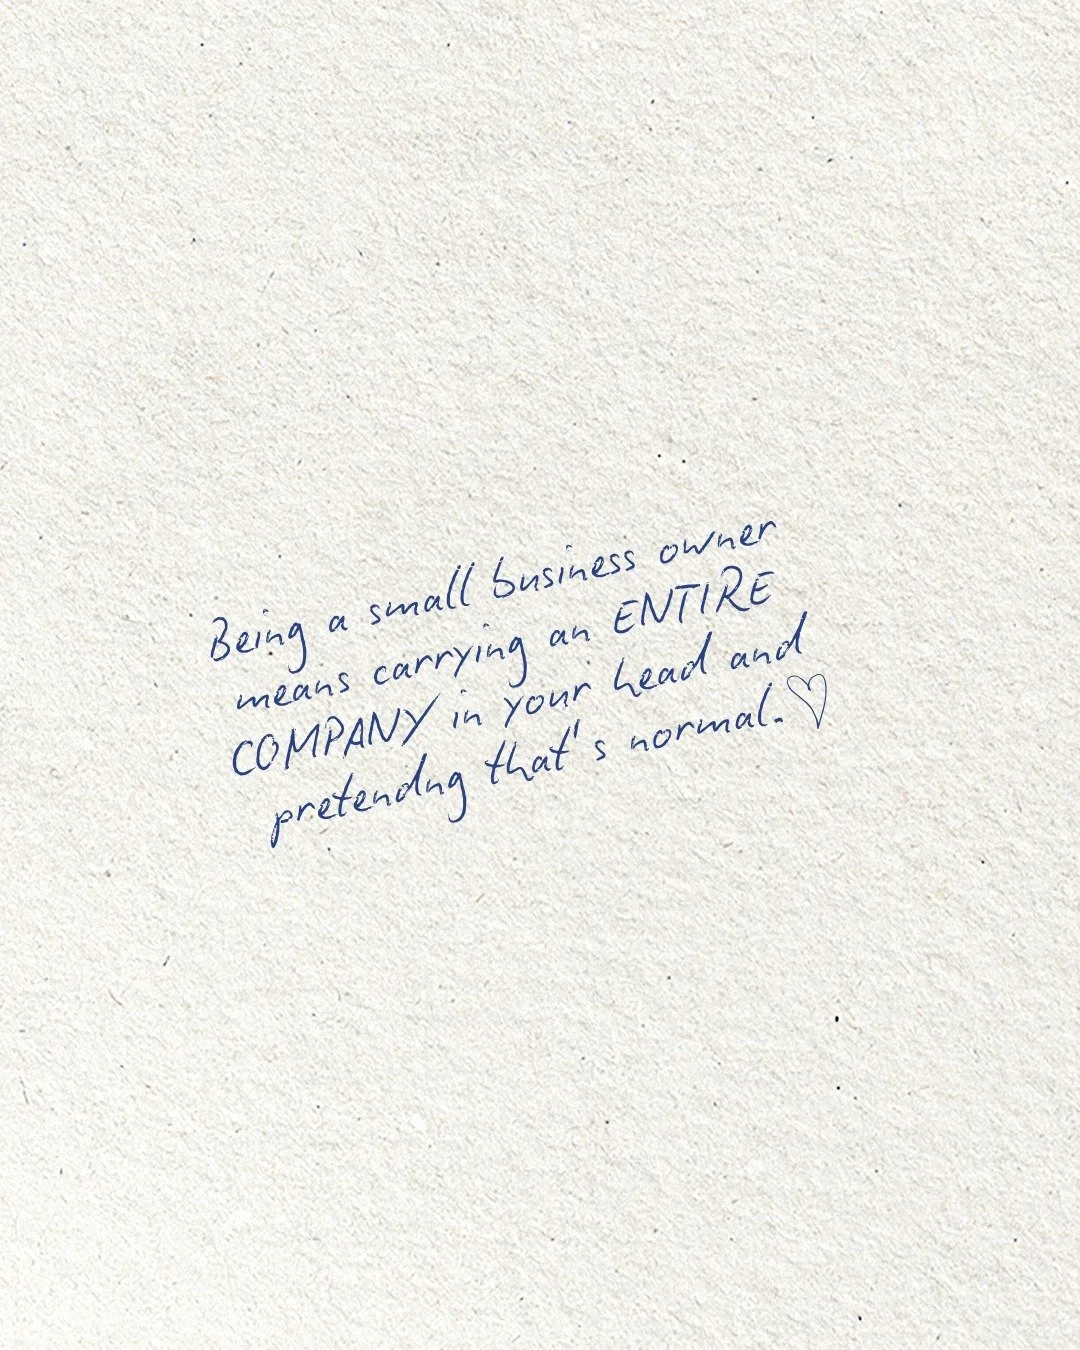 Being a small business owner
means carrying an ENTIRE
COMPANY in your head and
pretendng that's normal.♡